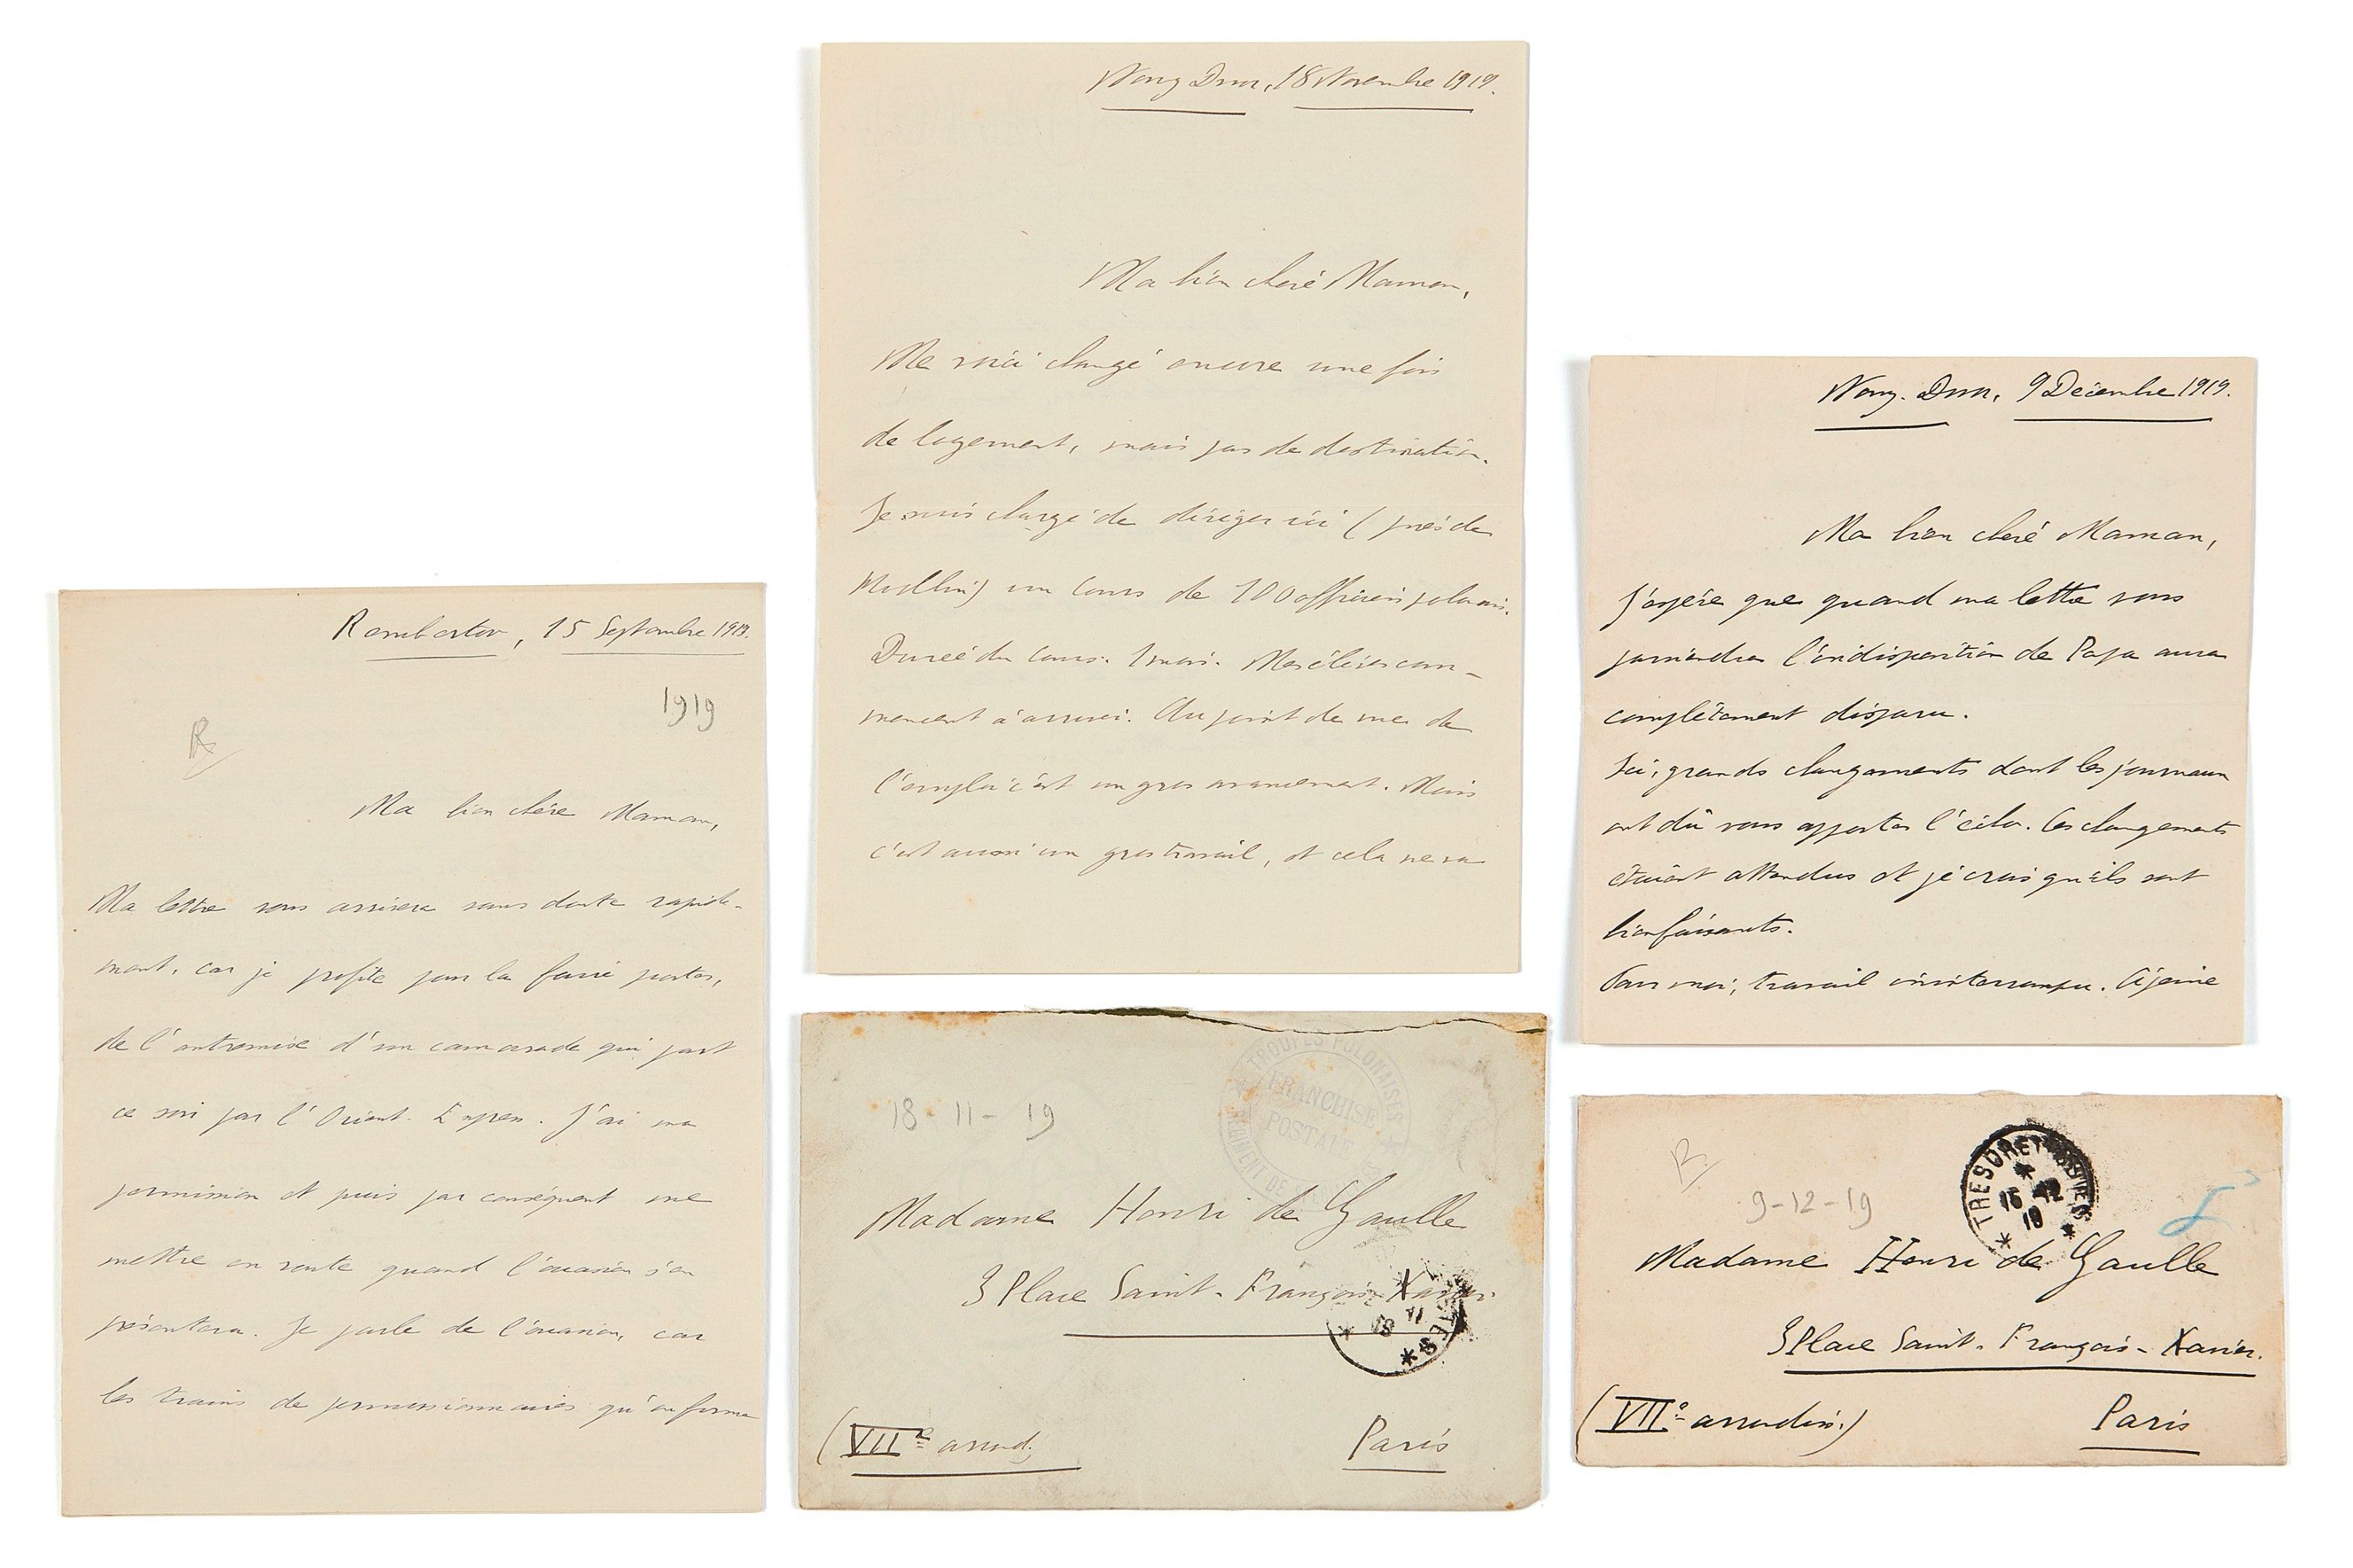 Rembertov, 15 Septembre 1919.
1919
Ma bien chère Maman,
Ma lettre vous arrivera sans doute rapide-
ment, car je profite pour la faire porter,
de l'entremise d'un camarade qui part
ce soir par l'Orient-Express. J'ai ma
permission et puis par conséquent me
mettre en route quand l'occasion s'en
présentera. Je parle de l'occasion, car
les trains de permissionnaires qu'on forme
18 Novembre 1919.
Ma bien chère Maman,
Me voici changé encore une fois
de logement, mais pas de destination.
Je suis chargé de diriger ici (près de
Modlin) un cours de 100 officiers polonais.
Durée du cours: 1 mois. Mes élèves com-
mencent à arriver. Au point de vue de
l'emploi c'est un gros avancement. Mais
c'est aussi un gros travail, et cela ne va
18-11-19
TROUPES POLONAISES
FRANCHISE
POSTALE
Madame Henri de Gaulle
3 Place Saint-François-Xavier.
(VIIe arrond.
Paris
9 Décembre 1919.
Ma bien chère Maman,
J'espère que quand ma lettre vous
parviendra l'indisposition de Papa aura
complètement disparu.
Ici, grands changements dont les journaux
ont dû vous apporter l'écho. Ces changements
étaient attendus et je crois qu'ils sont
bienfaisants.
Pour moi, travail ininterrompu. A peine
9-12-19
TRESOR ET POSTES
16 12
19
Madame Henri de Gaulle
3 Place Saint-François-Xavier.
(VIIe arrondis.)
Paris